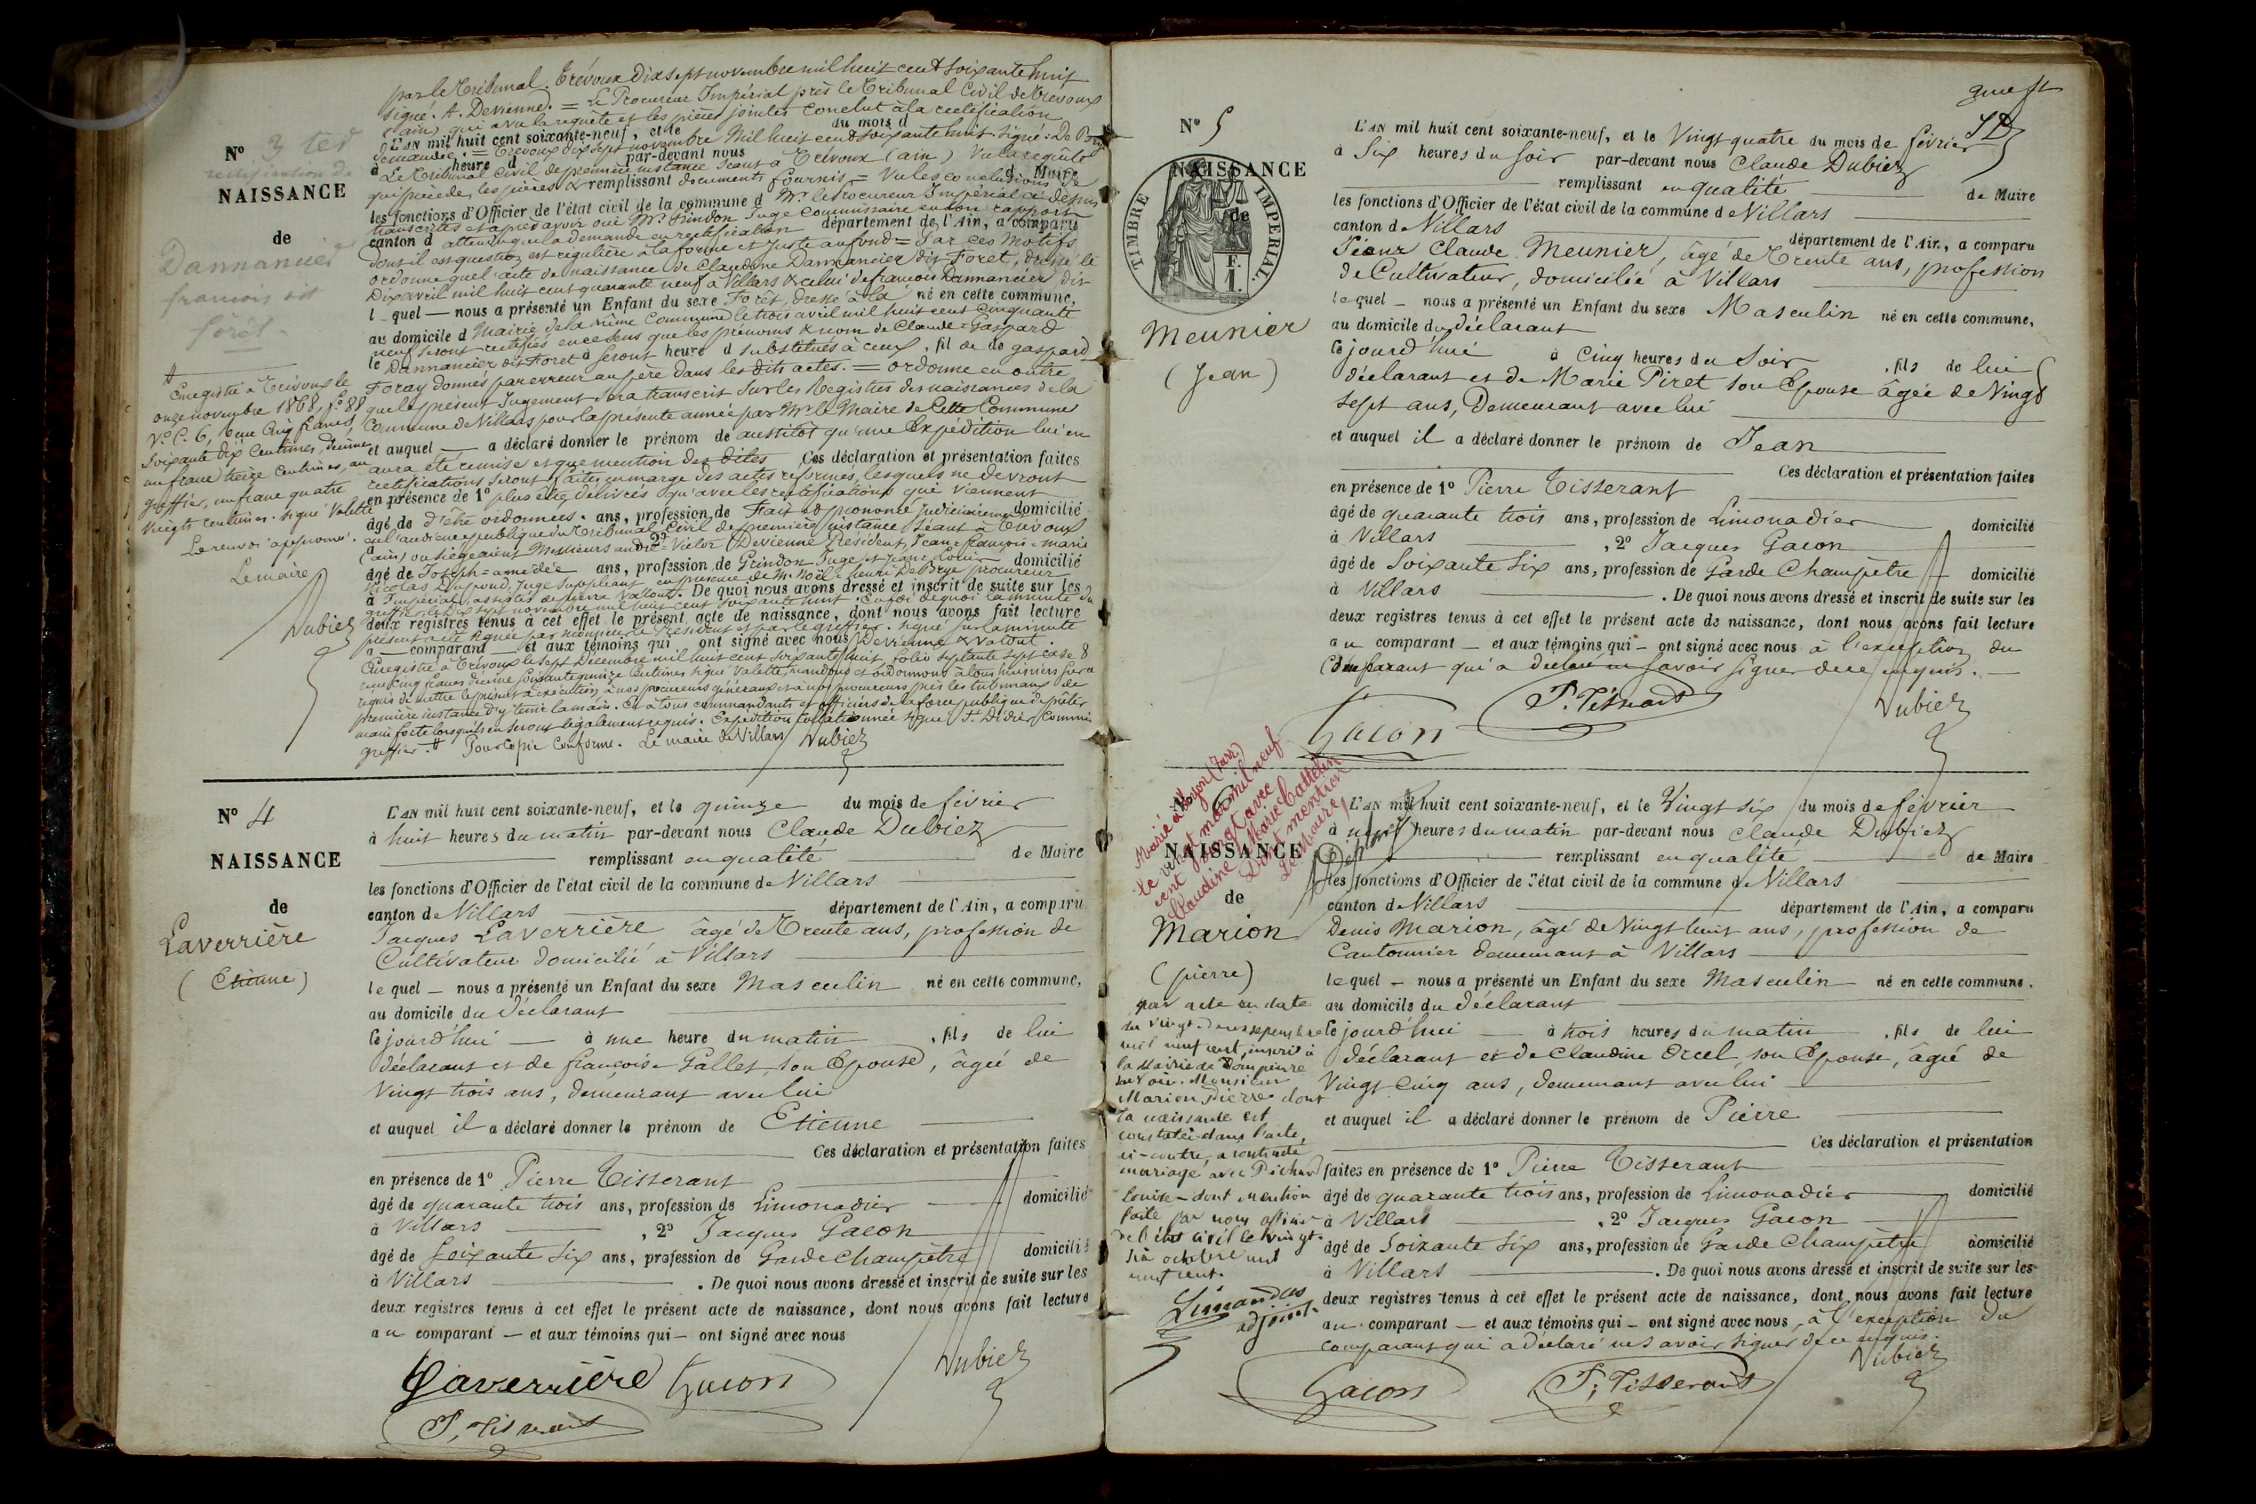 par le Tribunal. Trévoux dix sept novembre mil huit cent soixante huit
signé. A. Devienne. = Le Procureur Impérial près le Tribunal Civil de Trévoux
(ain) qui a vu la requête et les pièces jointes conclut à la rectification
L'AN mil huit cent soixante-neuf, et le du mois d
demandée. = Trévoux dix sept novembre mil huit cent soixante huit. signé: De
à heure d par-devant nous
Le Tribunal Civil de première instance séant à Trévoux (ain) Vu la requête
remplissant de Maire
qui précède, les pièces & documents fournis = Vu les conclusions de
Mr. le Procureur Impérial ci dessus
les fonctions d'Officier de l'état civil de la commune d
transcrites et après avoir ouï Mr. Grindon Juge Commissaire en son rapport
canton d département de l'Ain, a comparu
attendu que la demande en rectification
dont il est question est régulière à la forme et juste au fond = Par ces motifs
ordonne que l'acte de naissance de Claudine Dannancier dit Foret, dressé le
Dix avril mil huit cent quarante neuf à Villars & celui de francois Dannancier dit
l quel — nous a présenté un Enfant du sexe Forêt, dressé à la né en cette commune,
au domicile d Mairie de la même Commune le trois avril mil huit cent cinquante
neuf seront rectifiés en ce sens que les prénoms & nom de Claude Gaspard
le Dannancier dit Foret à seront heure d substitués à ceux, fil de de gaspard
Foray donnés par erreur au père dans les dits actes. = ordonne en outre
que le présent Jugement sera transcrit sur les Registres des naissances de la
Commune de Villars pour la présente année par Mr. le Maire de Cette Commune
et auquel — a déclaré donner le prénom de aussitôt qu'une Expédition lui en
aura été remise et que mention des dites Ces déclaration et présentation faites
rectifications seront faites en marge des actes réformés, lesquels ne devront
en présence de 1° plus être délivrés qu'avec les rectifications qui viennent
âgé de d'être ordonnées. ans, profession de Fait et prononcé judiciairement domicilié
en l'audience publique du Tribunal Civil de première instance séant à Trévoux
à (ain) où siégeaient Messieurs andré Victor Devienne Président, Jean françois marie
2°
âgé de Joseph amédée ans, profession de Grindon Juge et Jean Louis domicilié
Nicolas Dupond, Juge suppléant, en présence de Mr. Noël henri De Brye procureur
à Impérial, assistés de pierre Vatout. De quoi nous avons dressé et inscrit de suite sur les
greffier le dix sept novembre mil huit cent soixante huit. En foi de quoi la minute du
deux registres tenus à cet effet le présent acte de naissance, dont nous avons fait lecture
présent a été signée par monsieur le Président et par le greffier. signé sur la minute
a — comparant — et aux témoins qui ont signé avec nous Devienne & Vatout.
Enregistré à Trévoux le sept Décembre mil huit cent soixante huit, folio septante sept case 8
reçu cinq francs décime soixante quinze centimes signé Valette, mandons et ordonnons à tous huissiers sur ce
requis de mettre le présent à exécution, à nos procureurs généraux et à nos procureurs près les tribunaux de
première instance d'y tenir la main. Et à tous commandants et officiers de la force publique de prêter
main forte lorsqu'ils en seront légalement requis. Expédition collationnée signé St. Didier Commis
greffier. Pour Copie Conforme. Le maire de Villars Dubiez
N° 3 ter
rectification de
NAISSANCE
de
Dannancier
francois dit
forêt
Enregistré à Trévoux le
onze novembre 1868, f° 88
V° C. 6, reçu Cinq francs,
Soixante dix Centimes, décime
un franc treize centimes, au
greffier, un franc quatre
Vingts centimes. signé Valette
Le renvoi approuvé.
Le maire
Dubiez
N° 4
NAISSANCE
de
Laverrière
(Etienne)
L'AN mil huit cent soixante-neuf, et le quinze du mois de février
à huit heures du matin par-devant nous Claude Dubiez
remplissant en qualité de Maire
les fonctions d'Officier de l'état civil de la commune de Villars
canton de Villars département de l'Ain, a comparu
Jacques Laverrière âgé de Trente ans, profession de
Cultivateur domicilié à Villars
le quel — nous a présenté un Enfant du sexe Masculin né en cette commune,
au domicile du déclarant
Ce jourd'hui — à une heure du matin , fils de lui
déclarant et de françoise Gallet, son Epouse, âgée de
Vingt trois ans, demeurant avec lui
et auquel il a déclaré donner le prénom de Etienne
Ces déclaration et présentation faites
en présence de 1° Pierre Tisserant
âgé de quarante trois ans, profession de Limonadier domicilié
à Villars , 2° Jacques Gacon
âgé de Soixante six ans, profession de Garde Champêtre domicilié
à Villars . De quoi nous avons dressé et inscrit de suite sur les
deux registres tenus à cet effet le présent acte de naissance, dont nous avons fait lecture
au comparant — et aux témoins qui — ont signé avec nous
Laverrière Gacon Dubiez
P. Tisserant
5
N° 5
NAISSANCE
de
TIMBRE IMPERIAL.
F.
I.
Meunier
(Jean)
L'AN mil huit cent soixante-neuf, et le Vingt quatre du mois de février
à Six heures du soir par-devant nous Claude Dubiez
remplissant en qualité de Maire
les fonctions d'Officier de l'état civil de la commune de Villars
canton de Villars département de l'Ain, a comparu
Claude Meunier, âgé de Trente ans, profession
de Cultivateur, domicilié à Villars
le quel — nous a présenté un Enfant du sexe Masculin né en cette commune,
au domicile du déclarant
Ce jourd'hui à Cinq heures du Soir , fils de lui
déclarant et de Marie Piret son Epouse âgée de Vingt
sept ans, Demeurant avec lui
et auquel il a déclaré donner le prénom de Jean
Ces déclaration et présentation faites
en présence de 1° Pierre Tisserant
âgé de quarante trois ans, profession de Limonadier domicilié
à Villars , 2° Jacques Gacon
âgé de Soixante Six ans, profession de Garde Champêtre domicilié
à Villars . De quoi nous avons dressé et inscrit de suite sur les
deux registres tenus à cet effet le présent acte de naissance, dont nous avons fait lecture
au comparant — et aux témoins qui — ont signé avec nous à l'exception du
Comparant qui a déclaré ne savoir signer de ce enquis. —
Gacon P. Tisserant Dubiez
Marié à Loyon (Jura)
le vingt mars mil neuf
cent vingt avec
Claudine Marie Cattelin
Dont mention
NAISSANCE
de
Marion
(pierre)
par acte en date
du vingt-deux septembre
mil neuf cent, inscrit à
la Mairie de Dompierre
sur Monsieur
Marion Pierre dont
la naissance est
constatée dans l'acte
ci-contre, a contracté
mariage avec Pichard
Louise — dont mention
faite par nous officier
de l'état civil le vingt-
six octobre mil
neuf cent.
Limandas
adjoint
L'AN mil huit cent soixante-neuf, et le Vingt six du mois de février
à neuf heures du matin par-devant nous Claude Dubiez
remplissant en qualité de Maire
les fonctions d'Officier de l'état civil de la commune de Villars
canton de Villars département de l'Ain, a comparu
Denis Marion, âgé de Vingt huit ans, profession de
Cantonnier demeurant à Villars
le quel — nous a présenté un Enfant du sexe Masculin né en cette commune.
au domicile du déclarant
Ce jourd'hui — à trois heures du matin , fils de lui
déclarant et de Claudine Orcel, son Epouse, âgée de
Vingt Cinq ans, demeurant avec lui
et auquel il a déclaré donner le prénom de Pierre
Ces déclaration et présentation
faites en présence de 1° Pierre Tisserant
âgé de quarante trois ans, profession de Limonadier domicilié
à Villars , 2° Jacques Gacon
âgé de Soixante Six ans, profession de Garde Champêtre domicilié
à Villars . De quoi nous avons dressé et inscrit de suite sur les
deux registres tenus à cet effet le présent acte de naissance, dont nous avons fait lecture
au comparant — et aux témoins qui — ont signé avec nous, à l'exception du
comparant qui a déclaré ne savoir signer de ce enquis.
Gacon P. Tisserant Dubiez